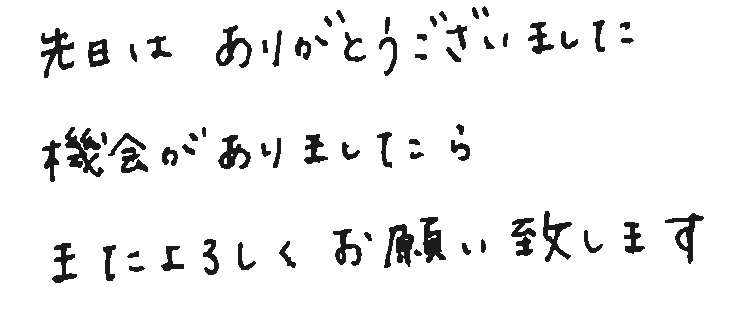 先日は ありがとうございました
機会がありましたら
またよろしく お願い致します